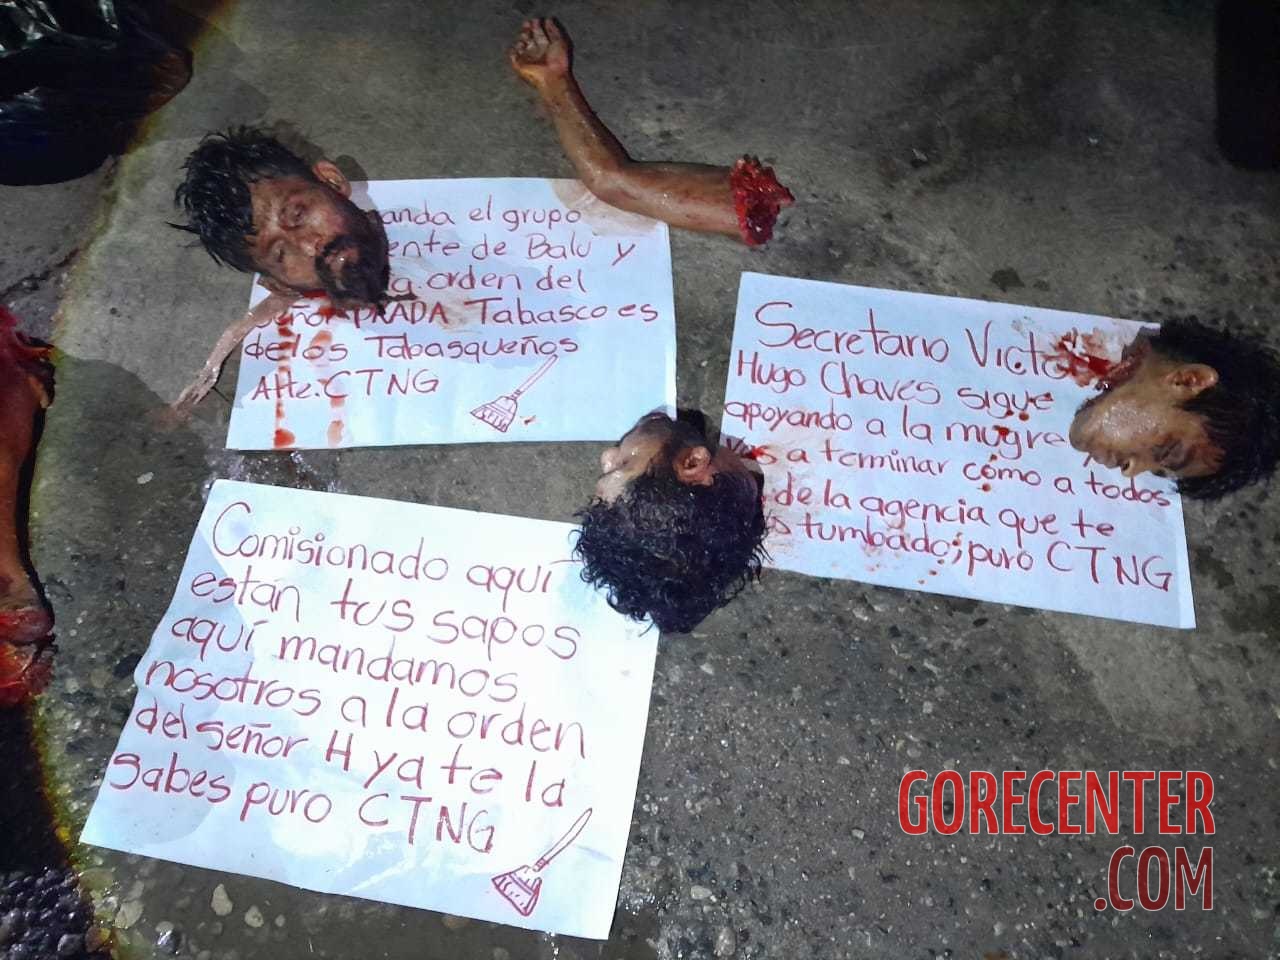 anda el grupo
ente de Balu y
a orden del
Señor PRADA Tabasco es
de los Tabasqueños
Atte. CTNG
Secretario Victo
Hugo Chaves sigue
apoyando a la mugre
Vas a terminar cómo a todos
de la agencia que te
tumbado; puro CTNG
Comisionado aquí
están tus sapos
aquí mandamos
nosotros a la orden
del señor H ya te la
sabes puro CTNG
GORECENTER
.COM